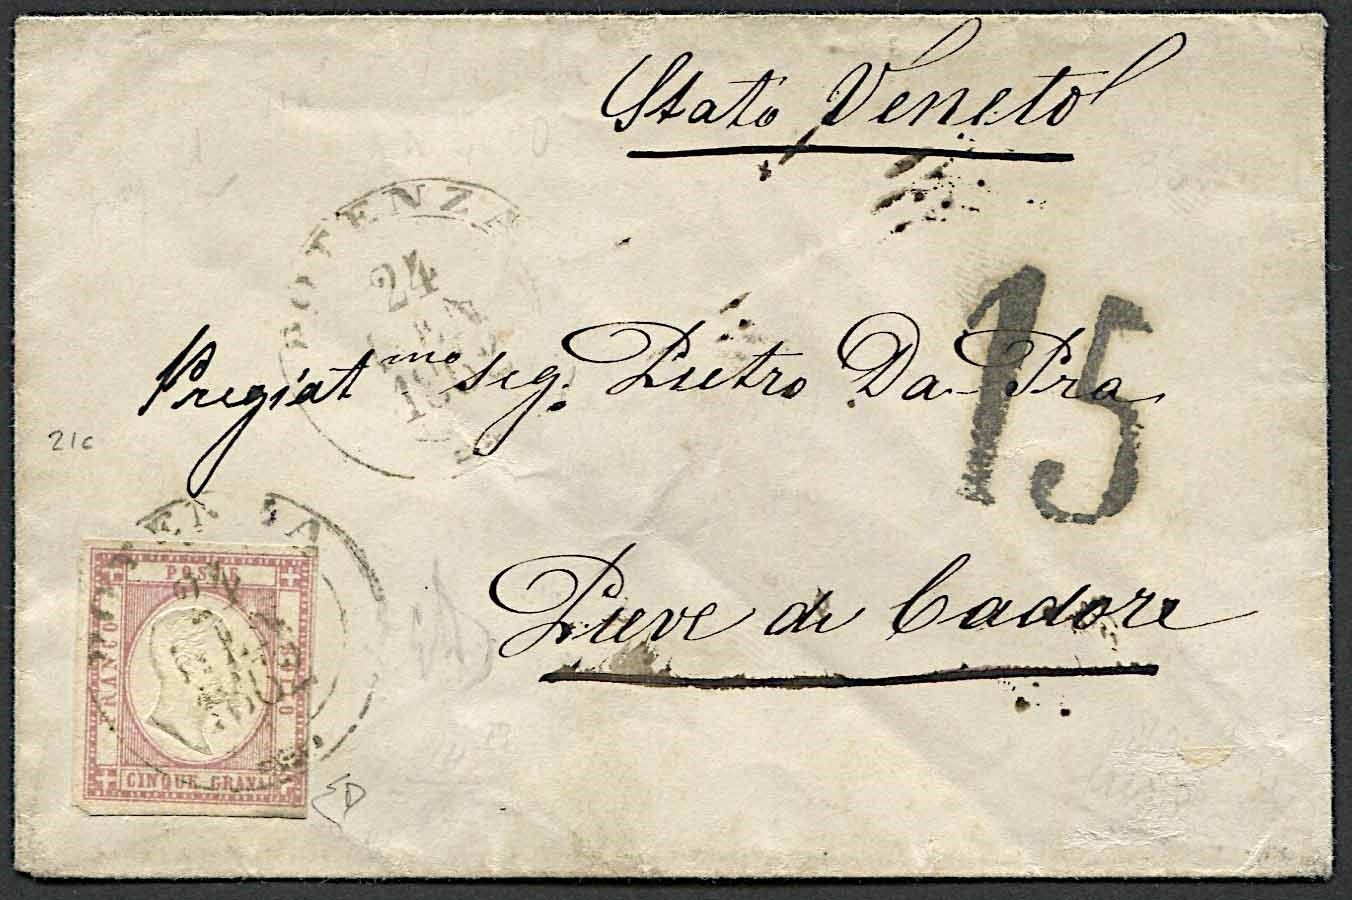 Stato Veneto
POTENZA
24
GEN
1862
15
Pregiat mo sig. Pietro Da Pra
21c
Pieve di Cadore
POTENZA
POSTE
FRANCO BOLLO
CINQUE GRANA
ED